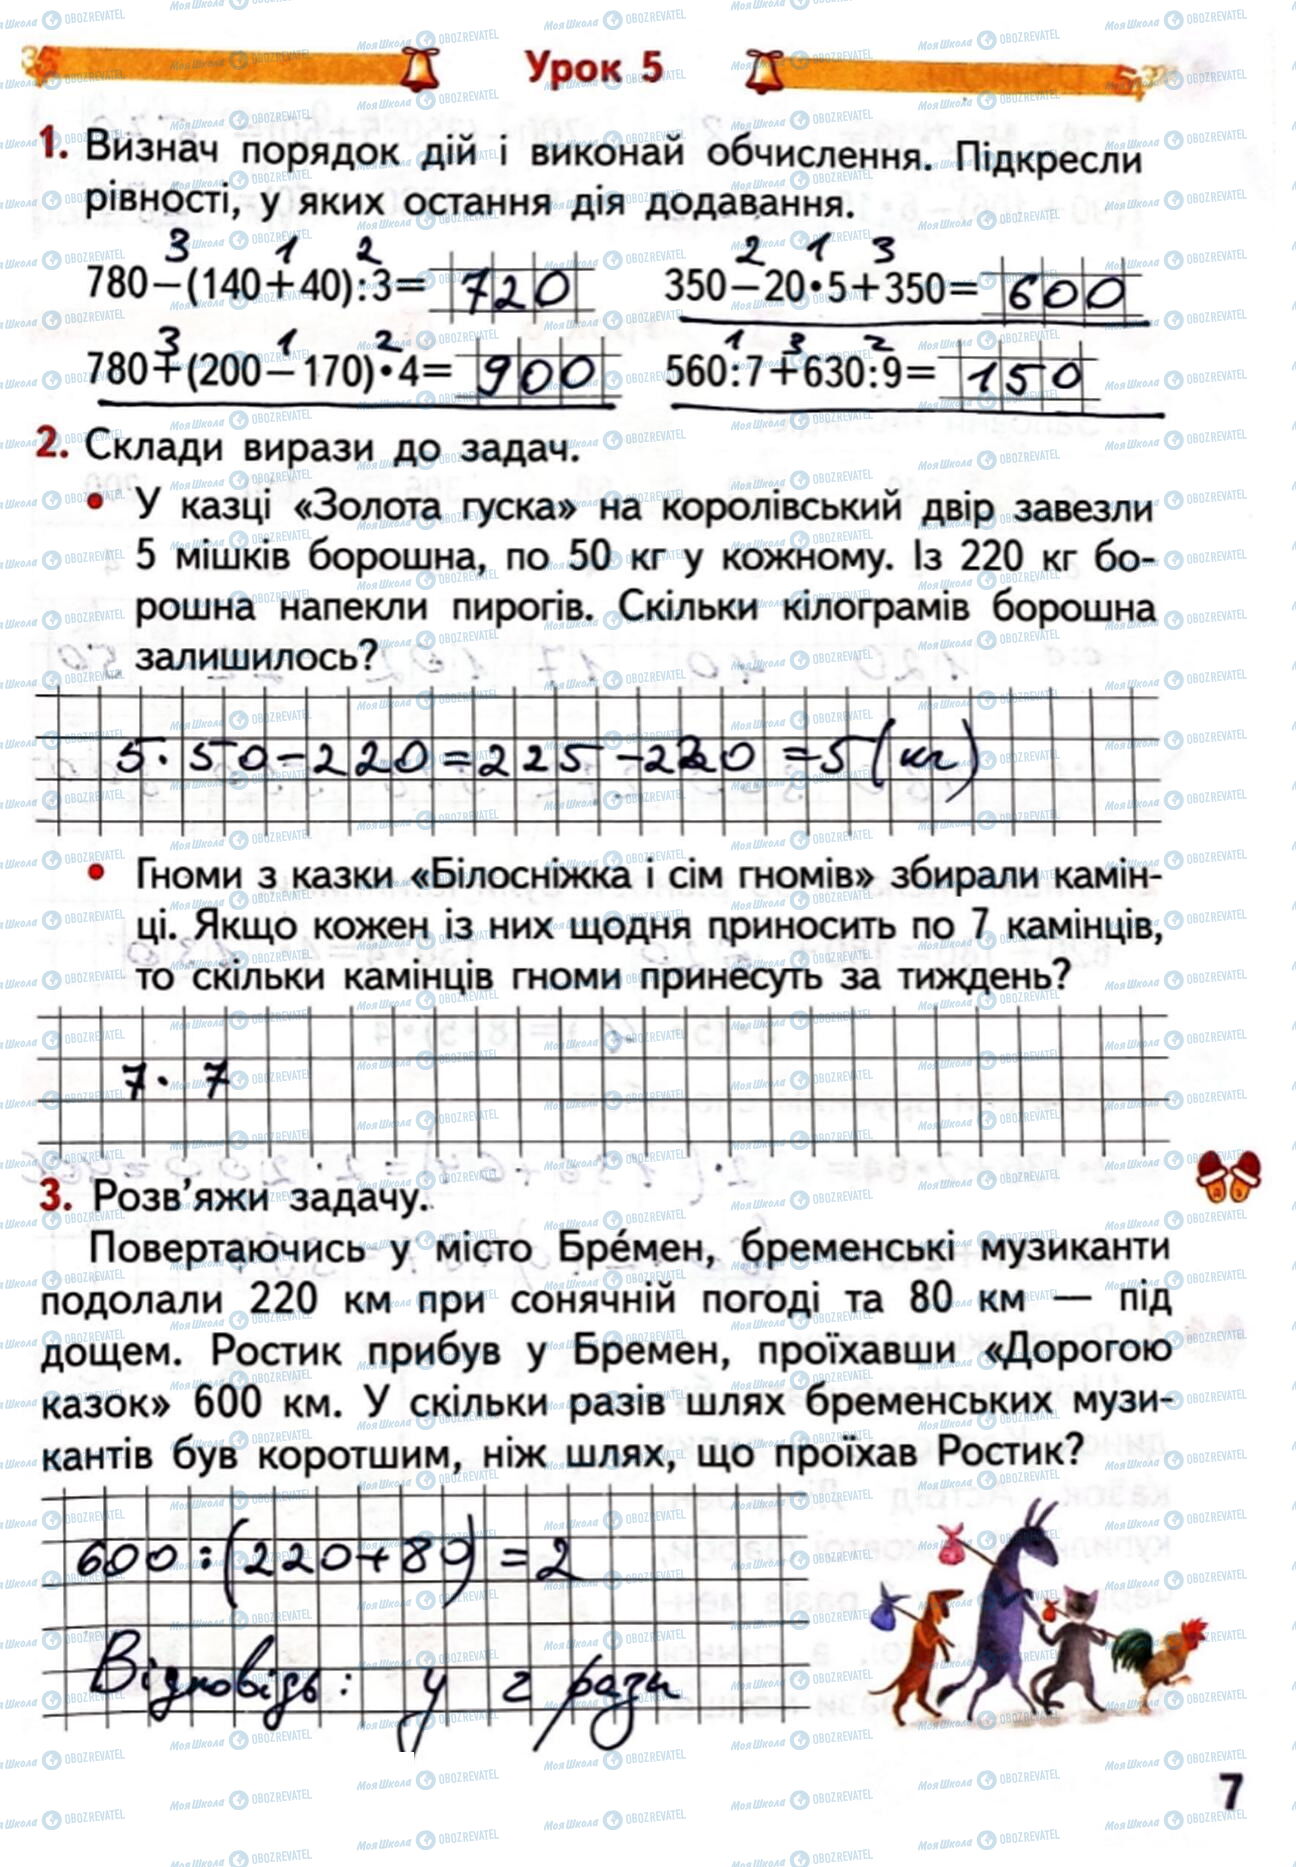 Урок 5
1. Визнач порядок дій і виконай обчислення. Підкресли
рівності, у яких остання дія додавання.
3 1 2
780-(140+40):3= 720
2 1 3
350-20·5+350= 600
3 1 2
780+(200-170)·4= 900
1 3 2
560:7+630:9= 150
2. Склади вирази до задач.
• У казці «Золота гуска» на королівський двір завезли
5 мішків борошна, по 50 кг у кожному. Із 220 кг бо-
рошна напекли пирогів. Скільки кілограмів борошна
залишилось?
5·50-220=225-220=5(кг)
• Гноми з казки «Білосніжка і сім гномів» збирали камін-
ці. Якщо кожен із них щодня приносить по 7 камінців,
то скільки камінців гноми принесуть за тиждень?
7·7
3. Розв'яжи задачу.
Повертаючись у місто Бре́мен, бременські музиканти
подолали 220 км при сонячній погоді та 80 км — під
дощем. Ростик прибув у Бремен, проїхавши «Дорогою
казок» 600 км. У скільки разів шлях бременських музи-
кантів був коротшим, ніж шлях, що проїхав Ростик?
600:(220+80)=2
Відповідь: у 2 рази
7
МояШкола OBOZREVATEL